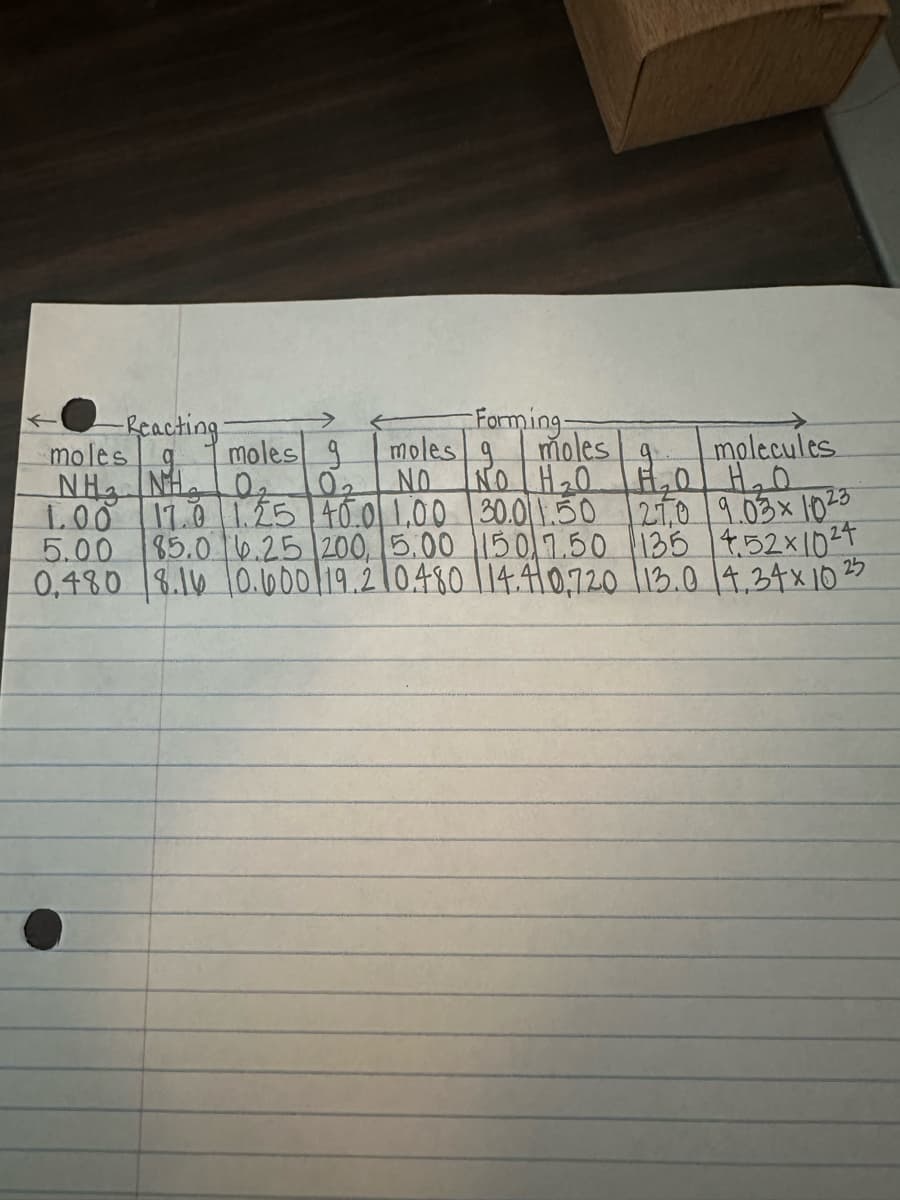 ← Reacting → ← Forming →
moles g moles g moles g moles g molecules
NH₃ NH₃ O₂ O₂ NO NO H₂O H₂O H₂O
1.00 17.0 1.25 40.0 1.00 30.0 1.50 27.0 9.03×10²³
5.00 85.0 6.25 200. 5.00 150. 7.50 135 4.52×10²⁴
0.480 8.16 0.600 19.2 0.480 14.4 0.720 13.0 4.34×10²³